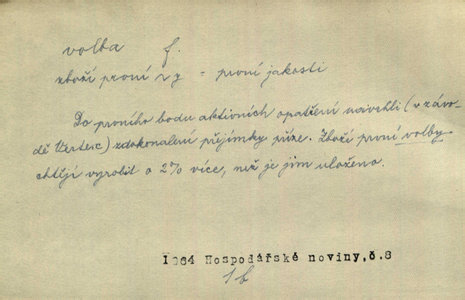 volba f.
zboží první v = první jakosti
Do prvního bodu aktivních opatření navrhli (v závo-
dě Vertex) zdokonalení přejímky příze. Zboží první volby
chtějí vyrobit o 2% více, než je jim uloženo.
1964 Hospodářské noviny,č.8